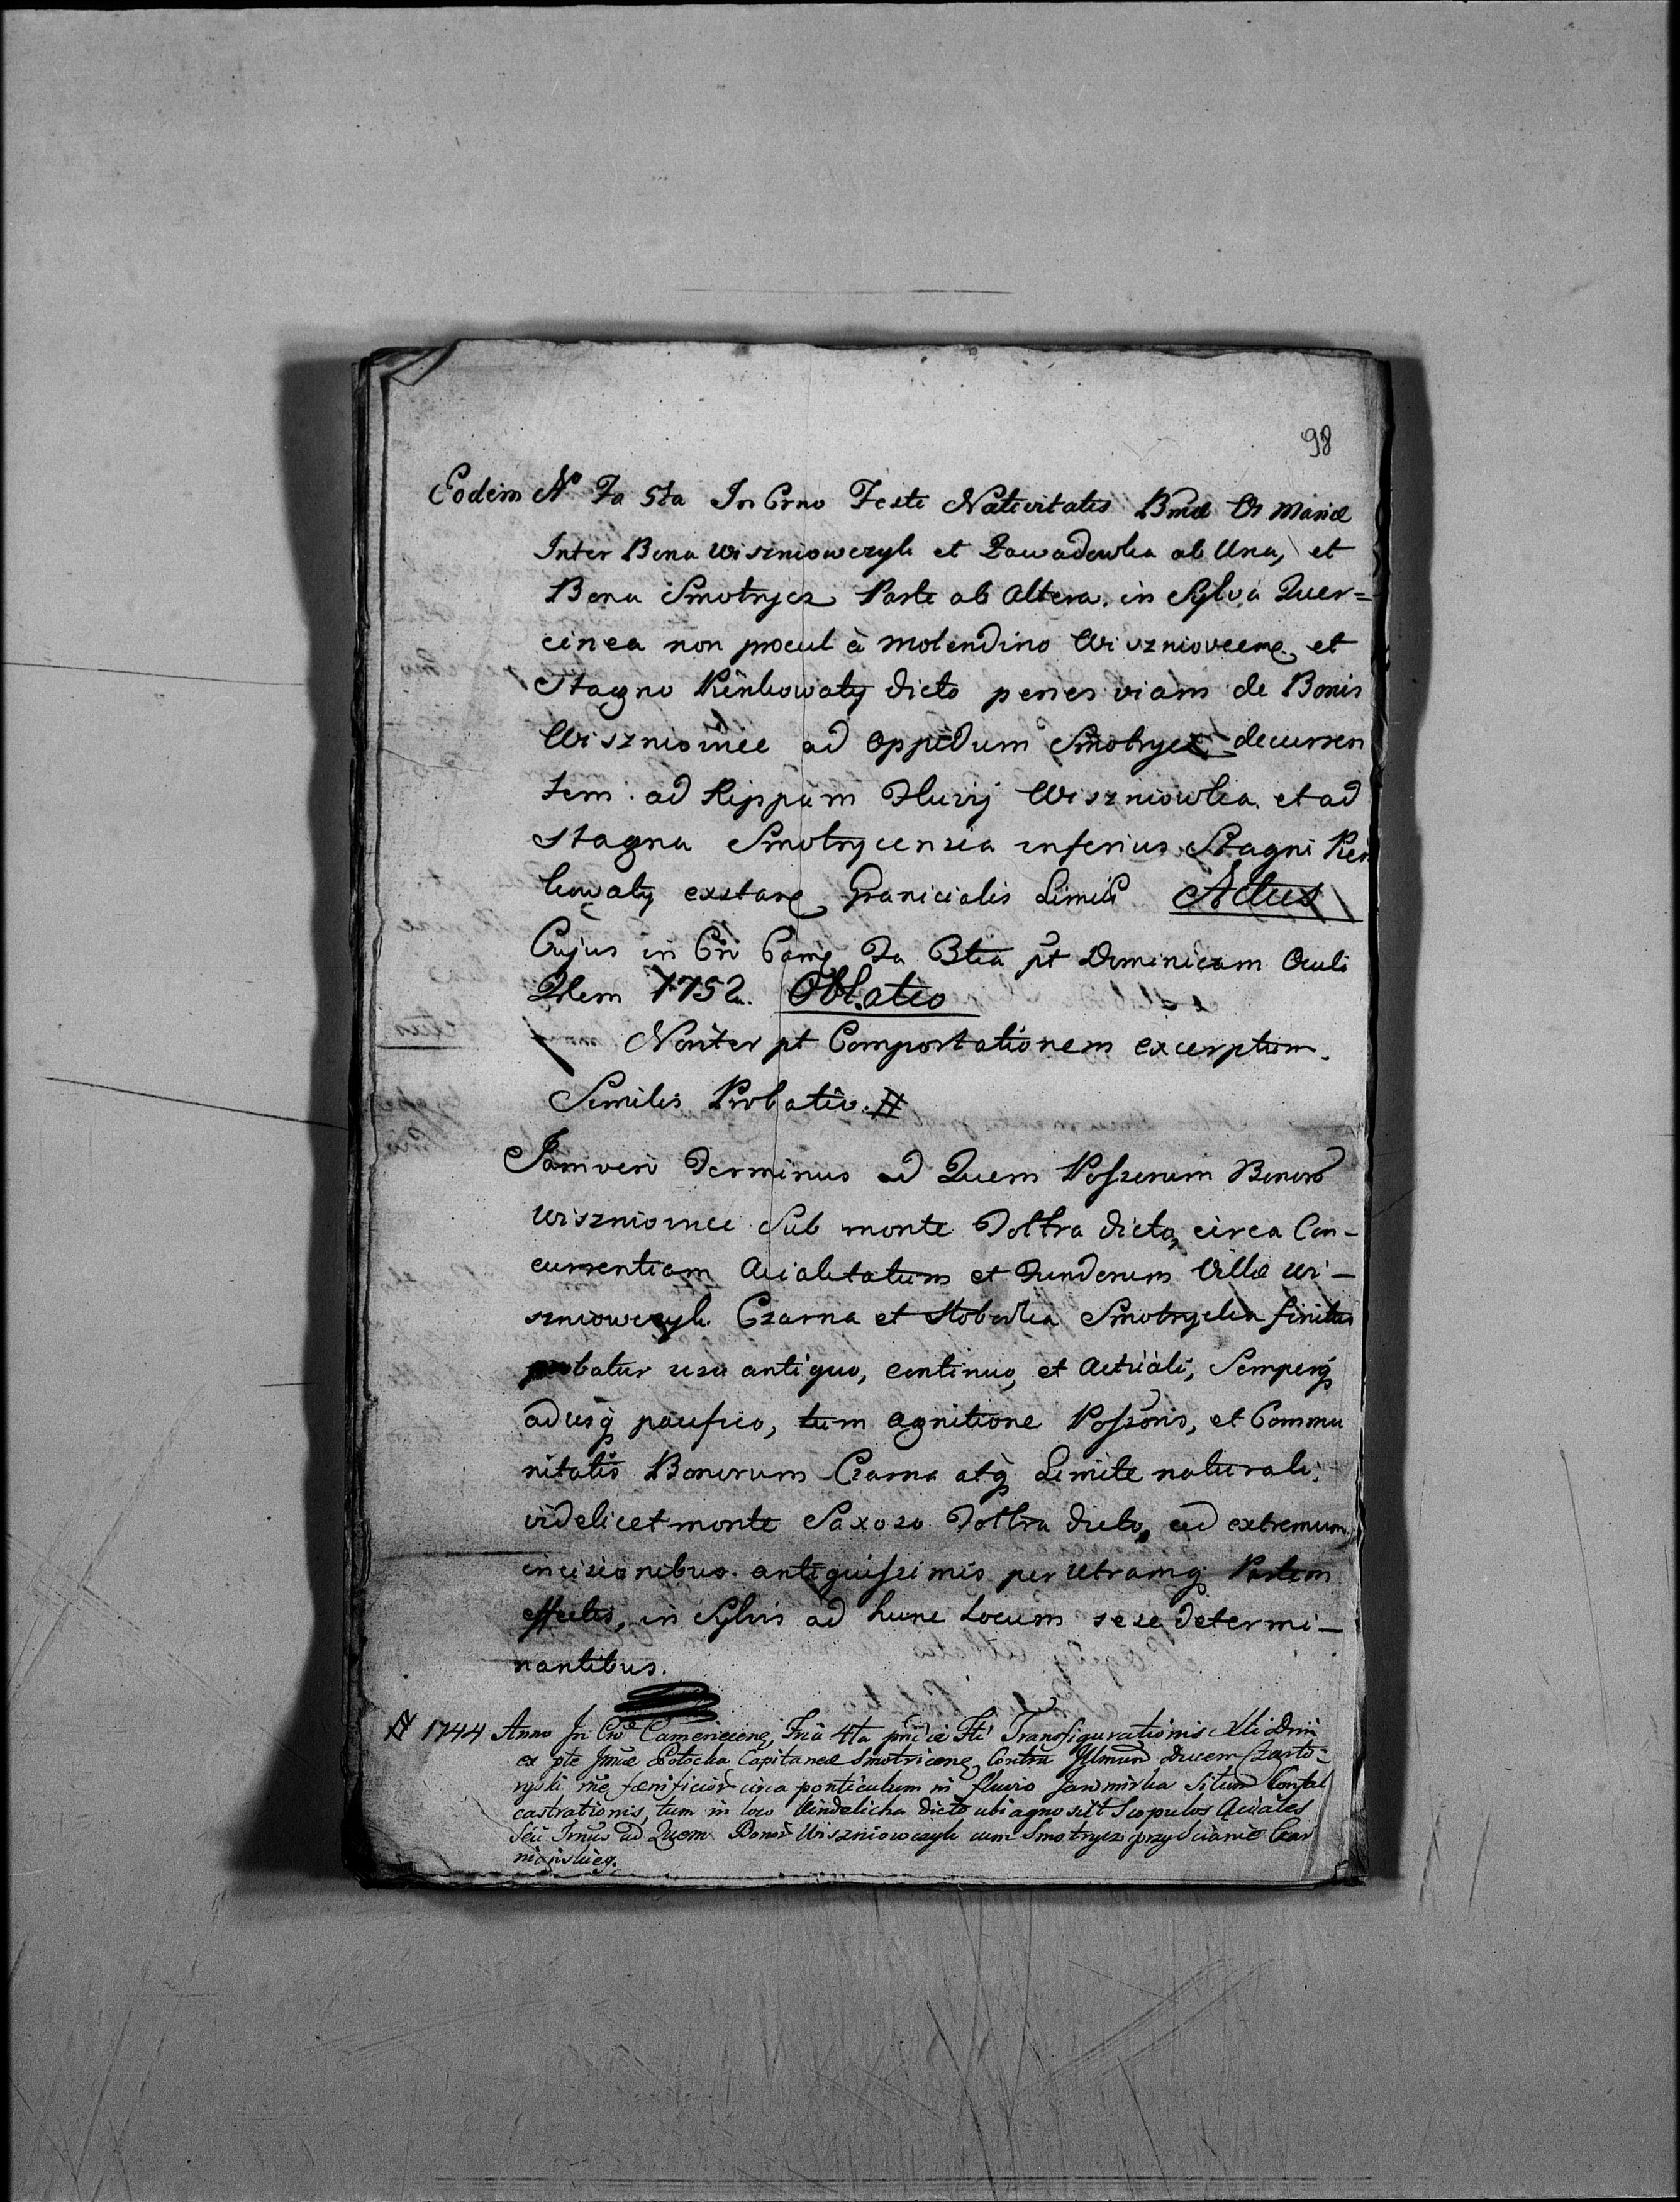 98
Eodem Nº Fa 5ta In Crno Festi Nativitatis Bmæ V Mariæ
Inter Bona Wiszniowczyk et Zawadowka ab Una, et
Bona Smotrycz Parte ab Altera, in Sylva Quer=
cinea non procul à molendino Wisznioveen et
Stagno Kieńkowaty dicto penes viam de Bonis
Wiszniowiec ad Oppidum Smotrycz decurren
tem ad Rippam Fluvij Wiszniowka et ad
Stagna Smotrycensia inferius Stagni Kień
kowaty exstan Granicialis Limit Actus
Cujus in Cri Cam Fa 3tia pt Dominicam Oculi
Qlem 1752. Oblatio
Noviter pt Comportationem excerptum.
Similis Probatio. #
Jam vero Terminus ad Quem Possrum Bonor
Wiszniowiec Sub monte Toltra dicto, circa Con-
currentiam Acialitatum et Funderum Villæ Wi-
szniowczyk Czarna et Slobodka Smotrycka finitus
probatur usu antiquo, continuo, et Actuali, Semperq
adusq pacifico, tum agnitione Possoris, et Commu
nitatis Bonorum Czarna atq Limite naturali,
videlicet monte Saxoso Toltra dicto, ad extremum
incisionibus antiquissimis per Utramq Partem
effectis, in Sylvis ad hunc Locum sese determi-
nantibus.
# 1744 Anno In Crio Camenecen, Fria 4ta pridie Fti Transfigurationis Xti Dni
ex pte Potocka Capitaneæ Smotricen, Contra Ducem Czarto-
ryski circa ponticulum in fluvio Jarmirka Situm
castrationis, tum in loco dicto ubi agnoscit Scopulos Aciales
Seu Trnus ad Quem Bonor Wiszniowczyk cum Smotrycz przy Scianie Czar